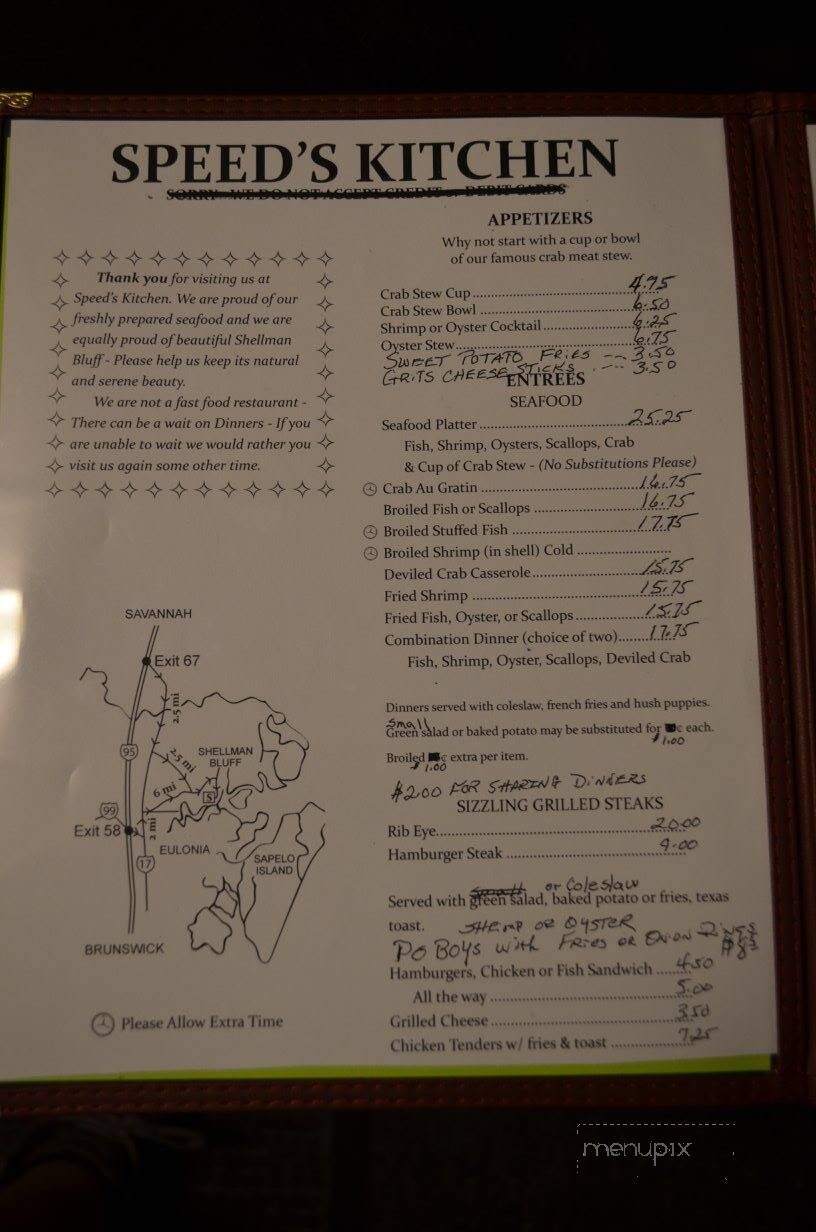 SPEED'S KITCHEN
SORRY - WE DO NOT ACCEPT CREDIT or DEBIT CARDS
Thank you for visiting us at
Speed's Kitchen. We are proud of our
freshly prepared seafood and we are
equally proud of beautiful Shellman
Bluff - Please help us keep its natural
and serene beauty.
We are not a fast food restaurant -
There can be a wait on Dinners - If you
are unable to wait we would rather you
visit us again some other time.
SAVANNAH
Exit 67
2.5 mi
95
2.5 mi
SHELLMAN
BLUFF
6 mi
S
99
Exit 58
2 mi
EULONIA
17
SAPELO
ISLAND
BRUNSWICK
Please Allow Extra Time
APPETIZERS
Why not start with a cup or bowl
of our famous crab meat stew.
Crab Stew Cup 4.95
Crab Stew Bowl 6.50
Shrimp or Oyster Cocktail 6.25
Oyster Stew 6.75
SWEET POTATO FRIES -- 3.50
GRITS CHEESE STICKS --- 3.50
ENTREES
SEAFOOD
Seafood Platter 25.25
Fish, Shrimp, Oysters, Scallops, Crab
& Cup of Crab Stew - (No Substitutions Please)
Crab Au Gratin 16.75
Broiled Fish or Scallops 16.75
Broiled Stuffed Fish 17.75
Broiled Shrimp (in shell) Cold
Deviled Crab Casserole 15.75
Fried Shrimp 15.75
Fried Fish, Oyster, or Scallops 15.75
Combination Dinner (choice of two) 17.75
Fish, Shrimp, Oyster, Scallops, Deviled Crab
Dinners served with coleslaw, french fries and hush puppies.
Small
Green salad or baked potato may be substituted for c each.
$1.00
Broiled c extra per item.
$1.00
$2.00 FOR SHARING DINNERS
SIZZLING GRILLED STEAKS
Rib Eye 20.00
Hamburger Steak 9.00
small or Coleslaw
Served with green salad, baked potato or fries, texas
toast. SHRIMP OR OYSTER
PO BOYS with FRIES OR ONION RINGS
Hamburgers, Chicken or Fish Sandwich 4.50
All the way 5.00
Grilled Cheese 3.50
Chicken Tenders w/ fries & toast 7.25
menupix